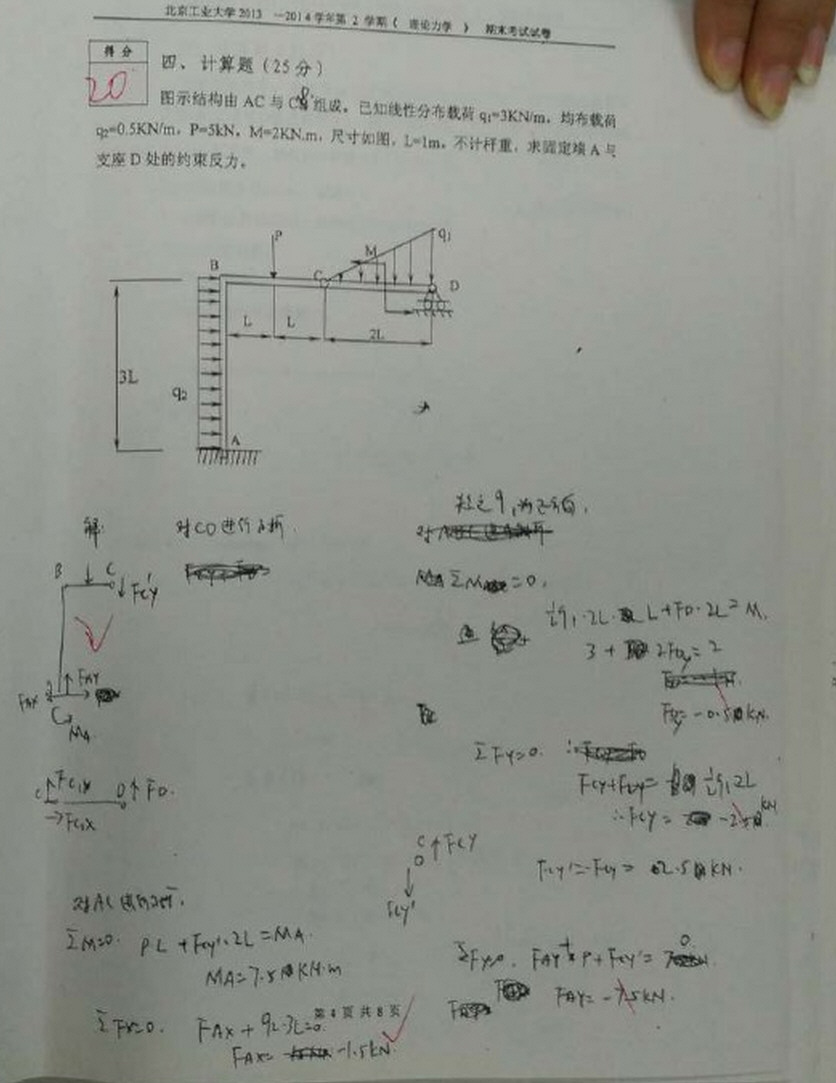 北京工业大学2013 —2014学年第 2 学期《 理论力学 》 期末考试试卷
得 分
20
四、计算题（25分）
图示结构由 AC 与 C 组成，已知线性分布载荷 q₁=3KN/m，均布载荷
q₂=0.5KN/m，P=5kN，M=2KN.m，尺寸如图，L=1m，不计杆重，求固定端 A 与
支座 D 处的约束反力。
P
q₁
M
B
C
D
L
L
2L
3L
q₂
A
解:
对CD进行分析.
B
C
F'CY
FAX
FAY
MA
C
D
FD.
FC₁X
ΣM =0.
½q₁·2L· L+FD·2L=M.
3 + 2FDy=2
FDy=-0.5 KN.
ΣFy=0.
FCy+FDy= ½q₁2L
∴FCy= -2.5 KN
C
FCY
FCY'
FCy'=-FCy= 2.5 KN.
对AC进行分析.
ΣM=0. PL+FCy'·2L=MA.
MA=7.5 KN·m
ΣFy=0. FAY+P+FCy'= 0.
FAY=-7.5KN.
第 4 页 共 8 页
ΣFX=0. FAX+q₂·3L=0.
FAX= -1.5KN.